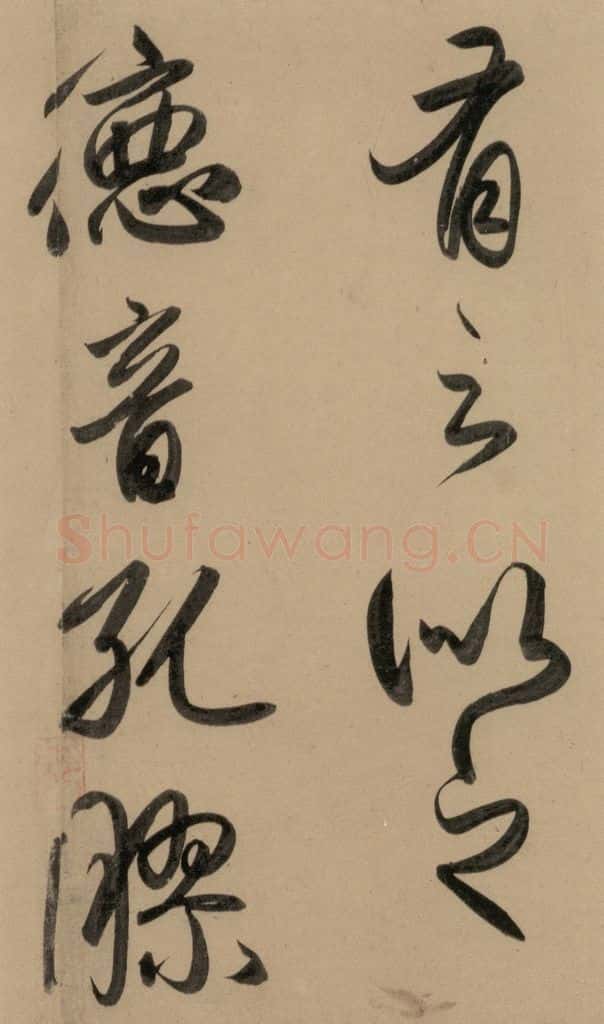 有之似之
德音孔膠
Shufawang.CN